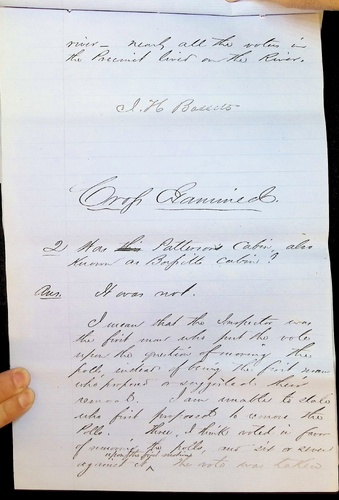 river - nearly all the voters in
the Precinct lived on the River.
J. H.
Cross Examined.
2 Was Patterson's Cabin, also
known as cabin?
Ans. It was not.
I mean that the Inspector was
the first man who put the vote
upon the question of moving the
polls, instead of being the first man
who proposed or suggested their
removal. I am unable to state
who first proposed to remove the
Polls. three, I think voted in favor
of removing the polls, and six or seven
upon the first voting
against it the vote was taken